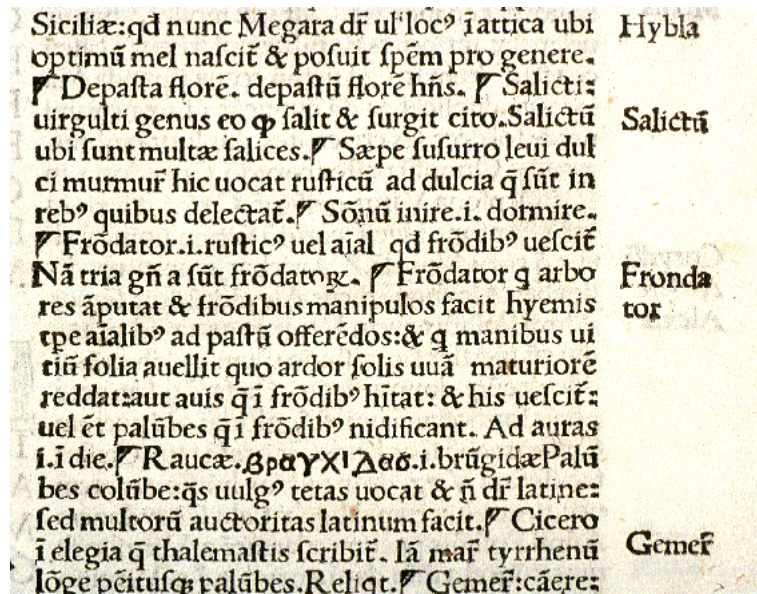 Siciliæ:qđ nunc Megara dr̃ ul' locꝰ ĩattica ubi
optimũ mel nascit̃ & posuit spẽm pro genere.
Depasta florẽ. depastũ florẽ hñs. Salicti:
uirgulti genus eo ꝙ salit & surgit cito. Salictũ
ubi sunt multæ salices. Sæpe susurro leui dul
ci murmur̃ hic uocat rusticũ ad dulcia q̃ sũt in
rebꝰ quibus delectat̃. Sõnũ inire.i. dormire.
Frõdator.i.rusticꝰ uel aĩal qđ frõdibꝰ uescit̃
Nã tria gñ a sũt frõdatoꝝ. Frõdator q arbo
res ãputat & frõdibus manipulos facit hyemis
tpe aĩalibꝰ ad pastũ offerẽdos:& q manibus ui
tiũ folia auellit quo ardor solis uuã maturiorẽ
reddat:aut auis q̃ ĩ frõdibꝰ hĩtat: & his uescit̃:
uel ẽt palũbes q̃ ĩ frõdibꝰ nidificant. Ad auras
i.ĩ die. Raucæ. βραγχιΔασ.i.brũgidæ Palũ
bes colũbe:q̃s uulgꝰ tetas uocat & ñ dr̃ latine:
sed multorũ auctoritas latinum facit. Cicero
ĩ elegia q̃ thalemastis scribit̃. Iã mar̃ tyrrhenũ
lõge pẽitusqꝫ palũbes.Reliqt. Gemer̃:cãere:
Hybla
Salictũ
Fronda
tor
Gemer̃